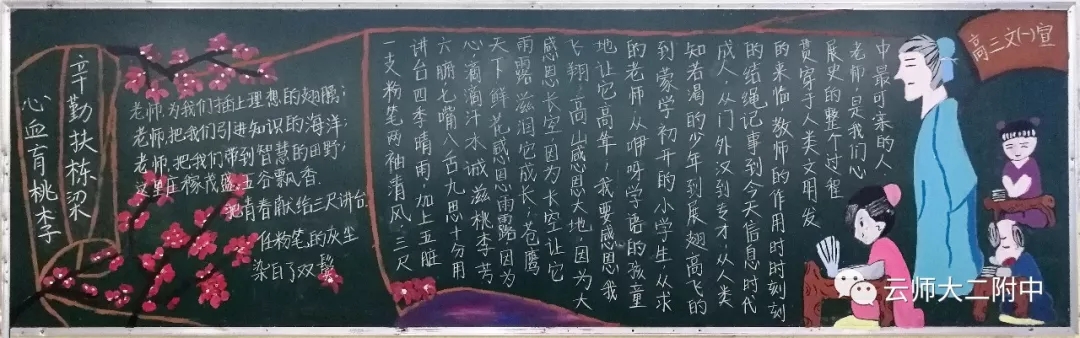 辛勤扶栋梁
心血育桃李
老师,为我们插上理想的翅膀;
老师,把我们引进知识的海洋;
老师,把我们带到智慧的田野;
这里庄稼茂盛,五谷飘香.
把青春献给三尺讲台.
任粉笔的灰尘
染白了双鬓
一支粉笔两袖清风,三尺
讲台四季晴雨,加上五脏
六腑七嘴八舌九思十分用
心滴滴汗水诚滋桃李芳
天下鲜花感恩雨露因为
雨露滋润它成长;苍鹰
感恩长空因为长空让它
飞翔,高山感恩大地因为大
地让它高耸,我要感恩我
的老师从咿呀学语的孩童
到蒙学初开的小学生,从求
知若渴的少年到展翅高飞的
成人,从门外汉到专才,从人类
的结绳记事到今天信息时代
的来临教师的作用时时刻刻
贯穿于人类文明发
展史的整个过程
老师,是我们心
中最可亲的人.
高三文(一)宣
云师大二附中